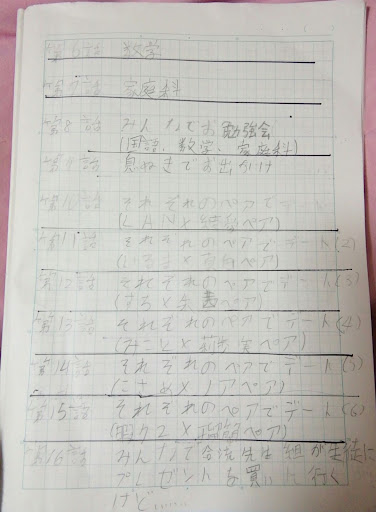 第6話 数学
第7話 家庭科
第8話 みんなでお勉強会
(国語、数学、家庭科)
第9話 息ぬきでお出かけ
第10話 それぞれのペアでデート
ペア)
第11話 それぞれのペアでデート(2)
ペア)
第12話 それぞれのペアでデート(3)
ペア)
第13話 それぞれのペアでデート(4)
(みこと×
ペア)
第14話 それぞれのペアでデート(5)
(こさめ×ノアペア)
第15話 それぞれのペアでデート(6)
ペア)
第16話 みんなで合流先生組が生徒に
プレゼントを買いに行く
けど……